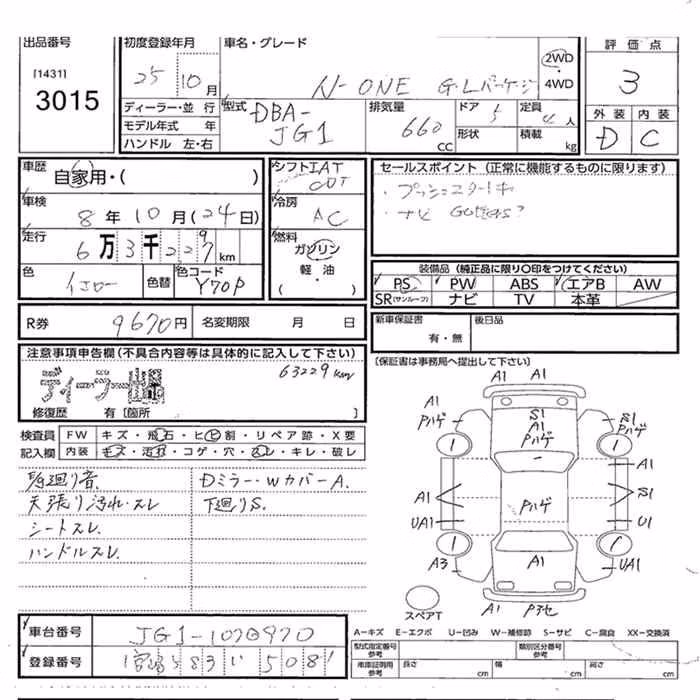 出品番号
[1431]
3015
初度登録年月
25 10月
車名・グレード
N-ONE G・Lパッケージ
2WD
・
4WD
評価点
3
外装 内装
D C
ディーラー・並行
モデル年式 年
ハンドル 左・右
型式 DBA-
JG1
排気量
660
CC
ドア 5
形状
定員
4人
積載 kg
車歴
自家用・( )
車検
8年10月(24日)
走行
6万3千229km
色
イエロー
色替
色コード
Y70P
シフト IAT
CDT
冷房
AC
燃料
ガソリン
軽・油
( )
セールスポイント (正常に機能するものに限ります)
・プッシュスタート
・ナビ
装備品 (純正品に限り○印をつけてください)
PS PW ABS エアB AW
SR(サンルーフ) ナビ TV 本革
R券 9670円
名変期限 月 日
新車保証書
有・無
後日品
注意事項申告欄(不具合内容等は具体的に記入して下さい)
63229km
ディーラー出品
修復歴 有〔箇所 〕
〔保証書は事務局へ提出して下さい〕
検査員
記入欄
FW キズ・飛石・ヒビ割・リペア跡・X要
内装 キズ・汚れ・コゲ・穴・スレ・キレ・破レ
天張り汚れ・スレ
シートスレ
ハンドルスレ
Dミラー・WカバーA.
下廻りS.
A1
A1 A1
A1
Pハゲ
S1
A1
Pハゲ
S1
Pハゲ
A1
A1
S1
Pハゲ
UA1
U1
A3
A1
UA1
A1
スペアT
車台番号 JG1-1070970
登録番号
A-キズ E-エクボ U-凹み W-補修跡 S-サビ C-腐食 XX-交換済
型式指定番号
参考
類別区分番号
参考
車庫証明用
参考
長さ cm
幅 cm
高さ cm